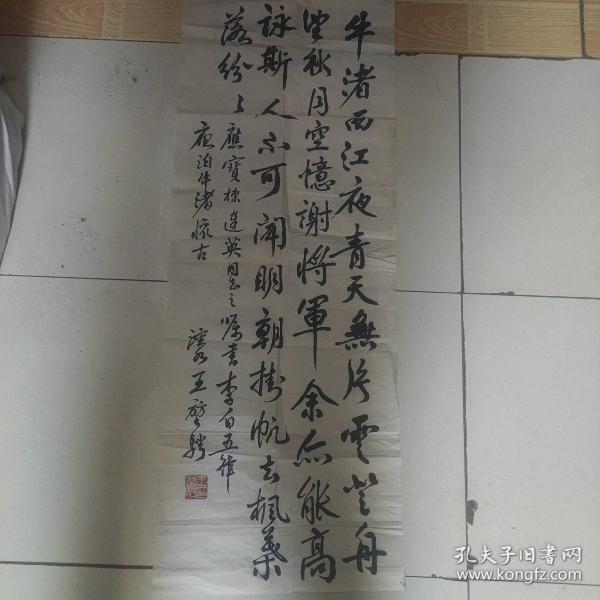 牛渚西江夜青天無片雲登舟
望秋月空憶謝将軍余亦能高
詠斯人不可聞明朝挂帆去楓葉
落紛々應寶棟連英同志之嘱書李白五律
夜泊牛渚懐古
王
孔夫子旧书网
www.kongfz.com